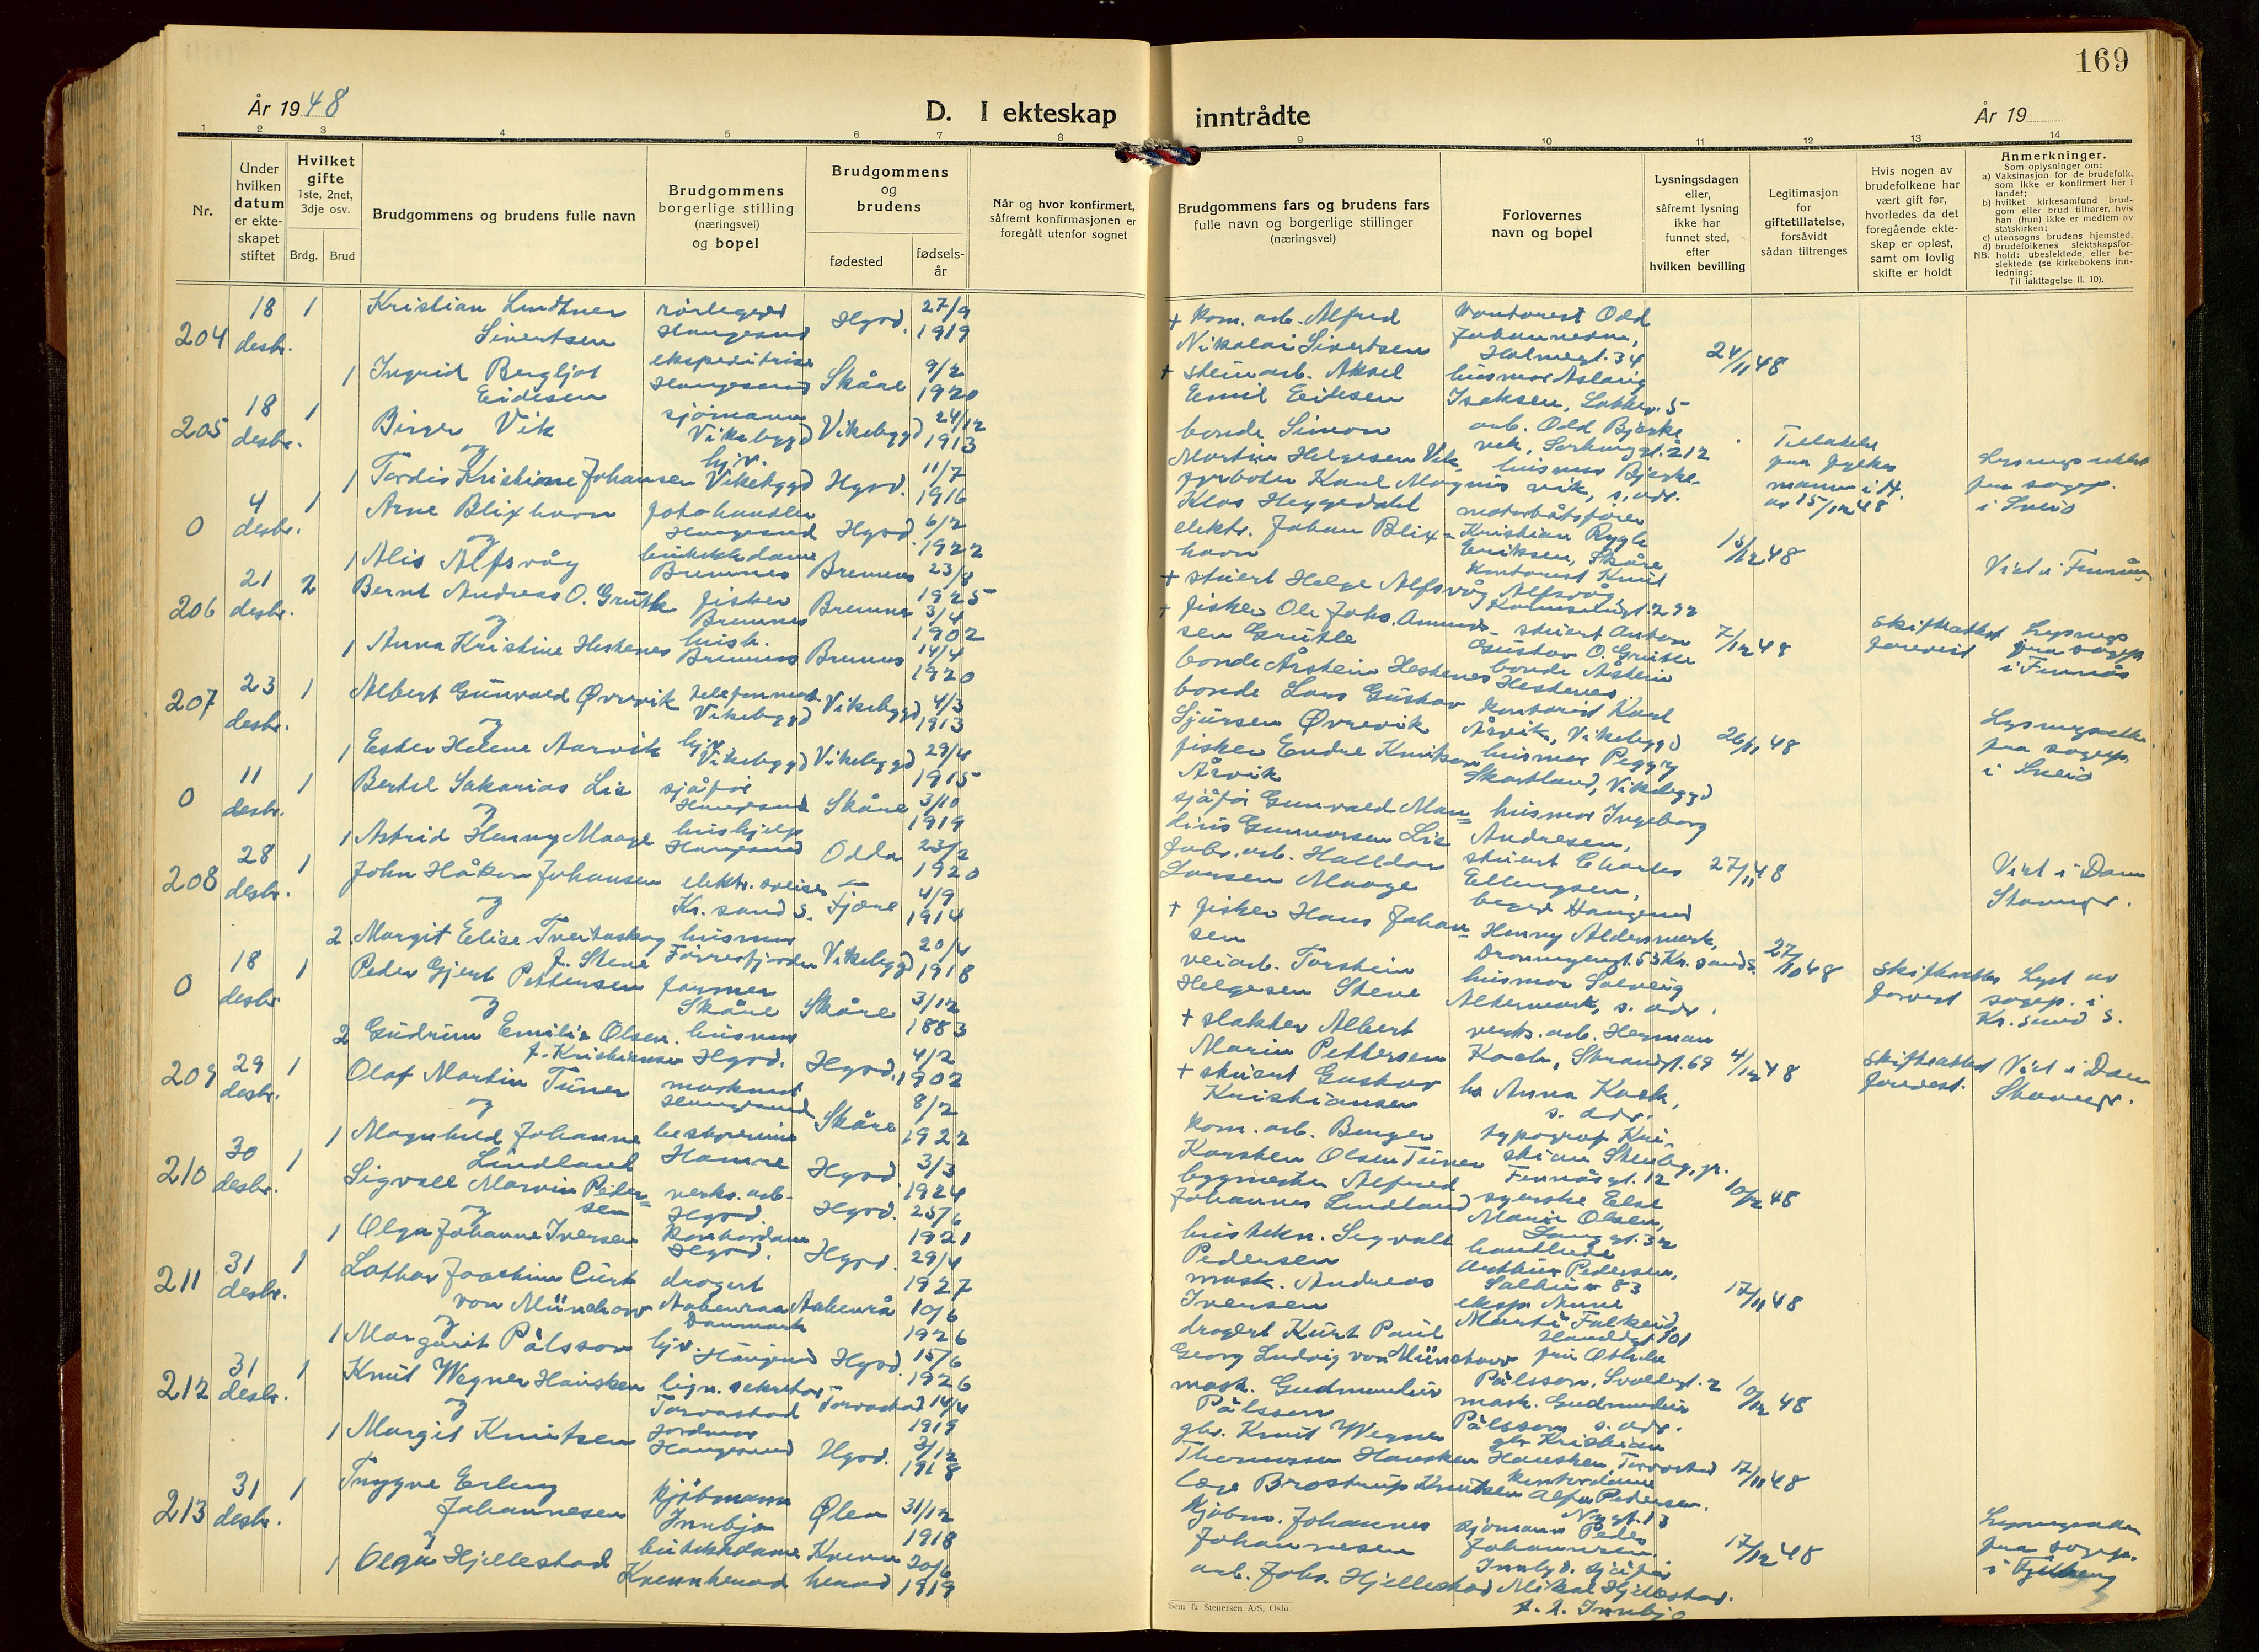 169
År 1948
D. I ekteskap inntrådte
År 19
1 2 3 4 5 6 7 8 9 10 11 12 13 14
Nr.
Under hvilken datum er ekte-skapet stiftet
Hvilket gifte
1ste, 2net, 3dje osv.
Brdg. Brud
Brudgommens og brudens fulle navn
Brudgommens borgerlige stilling (næringsvei) og bopel
Brudgommens og brudens
fødested
fødsels-år
Når og hvor konfirmert, såfremt konfirmasjonen er foregått utenfor sognet
Brudgommens fars og brudens fars fulle navn og borgerlige stillinger (næringsvei)
Forlovernes navn og bopel
Lysningsdagen eller, såfremt lysning ikke har funnet sted, efter hvilken bevilling
Legitimasjon for giftetillatelse, forsåvidt sådan tiltrenges
Hvis nogen av brudefolkene har vært gift før, hvorledes da det foregående ekte-skap er opløst, samt om lovlig skifte er holdt
Anmerkninger.
Som oplysninger om:
a) Vaksinasjon for de brudefolk, som ikke er konfirmert her i landet;
b) hvilket kirkesamfund brud-gom eller brud tilhører, hvis han (hun) ikke er medlem av statskirken;
c) utensogns brudens hjemsted.
d) brudefolkenes slektskapsfor-hold: ubeslektede eller be-slektede (se kirkebokens inn-ledning:
NB. Til iakttagelse II. 10).
204 18 desbr. 1 Kristian Lindtner Sivertsen rørlegger Haugesund Hgsd. 27/9 1919
+ kom. arb. Alfred Nikolai Sivertsen
kontorist Odd Johannesen, Holmegt. 34
24/11 48
1 Ingrid Bergljot Eidesen ekspeditrise Haugesund Skåre 9/2 1920
+ steinarb. Aksel Emil Eidesen
husmor Aslaug Isaksen,
205 18 desbr. 1 Birger Vik sjømann Vikebygd Vikebygd 24/12 1913
og
bonde Simon Martin Helgesen Vik,
arb. Odd Bjerkevik, 212
Tillatelse fra fylkesmann i H. av 15/12 48
Lysningsattest fra sogep. i Sveio
1 Tordis Kristiane Johansen hjv. Vikebygd Hgsd. 11/7 1916
fyrbøter Karl Magnus Klos Heggedahl
husmor Bjerkevik, s. adr.
0 4 desbr. 1 Arne Blixhavn fotohandler Haugesund Hgsd. 6/2 1922
og
elektr. Johan Blixhavn
motorbåtsfører Kristian Rygh Eriksen, Skåre
15/12 48
Viet i Finnås
1 Alis Alfsvåg butikkdame Bremnes Bremnes 23/8 1925
+ stuert Helge Alfsvåg
kontorist Knut Alfsvåg,
206 21 desbr. 2 Bernt Andreas O. Grutle fisker Bremnes Bremnes 3/4 1902
og
+ fisker Ole Johs. Amundsen Grutle
stuert Anton Gustav O. Grutle
7/12 48
Skifteattest forevist
Lysnings fra sogep. i Finnås
1 Anna Kristine Hestenes hush. Bremnes Bremnes 14/4 1920
bonde Årstein Hestenes
bonde Åstein Hestenes
207 23 desbr. 1 Albert Gunvald Øvrevik telefonmont. Vikebygd Vikebygd 4/3 1913
og
bonde Lars Gustav Sjursen Øvrevik
kontorist Karl Årvik, Vikebygd
26/11 48
Lysningsattest fra sogep. i Sveio
1 Ester Helene Aarvik hjv. Vikebygd Vikebygd 29/4 1915
fisker Endre Knutsen Årvik
husmor Peggy Skartland, Vikebygd
0 11 desbr. 1 Bertel Sakarias Lie sjåfør Haugesund Skåre 3/10 1919
og
sjåfør Gunvald Mandius Gunnarsen Lie
husmor Ingeborg Andresen,
27/11 48
Viet i Dom Stavanger.
1 Astrid Henny Maage hushjelp Haugesund Odda 23/2 1920
fabr. arb. Halldor Larsen Maage
stuert Charles Ellingsen, begge Haugesund
208 28 desbr. 1 John Håkon Johansen elektr. sveiser Kr. sand S. Fjære 4/9 1914
og
+ fisker Hans Johansen
Henry Aldermark, Dronningengt. 53 Kr. sand S.
27/10 48
Skifteattest forevist
Lyst av sogep. i Kr. sand S.
2 Margit Elise Tveitaskog f. Stene husmor Førresfjorden Vikebygd 20/4 1918
veiarb. Torstein Helgesen Stene
husmor Solveig Aldermark, s. adr.
0 18 desbr. 1 Peder Gjert Pettersen farmer Skåre Skåre 3/12 1883
og
+ slakter Albert Marin Pettersen
verks. arb. Herman Koch, Strandgt. 69
4/12 48
Skifteattest forevist.
Viet i Dom Stavanger.
2 Gudrun Emilie Olsen f. Kristiansen husmor Hgsd. Hgsd. 4/2 1902
+ stuert Gustav Kristiansen
Anna Koch, s. adr.
209 29 desbr. 1 Olaf Martin Tuner maskinist Haugesund Skåre 8/2 1922
og
kom. arb. Berger Karsten Olsen Tuner
typograf Kristian Stenberg, jr. Finnåsgt. 12
10/12 48
1 Magnhild Johanne Lindland bestyrerinne Hamre Hgsd. 3/3 1924
byggmester Alfred Johannes Lindland
syerske Else Marie Olsen, Langgt. 32
210 30 desbr. 1 Sigvald Marvin Pedersen verks. arb. Hgsd. Hgsd. 25/6 1921
og
Sigvald Pedersen
Arthur Pedersen, 83
17/11 48
1 Olga Johanne Iversen kontordame Hgsd. Hgsd. 29/4 1927
mask. Andreas Iversen
eksp. Anne Marti Falkeid, 101
211 31 desbr. 1 Lothar Joachim Curt von Münchow drogert Aabenraa Danmark Aabenrå 10/6 1926
og
drogert Kurt Paul Georg Ludvig von Münchow
fru Othilie Pålsson, Svoldergt. 2
10/12 48
1 Margarit Pålsson hjv. Haugesund Hgsd. 15/6 1926
mask. Gudmundur Pålsson
mask. Gudmundur Pålsson s. adr.
212 31 desbr. 1 Knut Wegner Hausken lign. sekretær Torvastad Torvastad 14/4 1919
og
gbr. Knut Wegner Thomassen Hausken
gbr. Kristian Hausken, Torvastad
17/11 48
1 Margit Knutsen jordmor Haugesund Hgsd. 3/12 1918
læge Brostrup Knutsen
kontordame Alfa Pedersen, Nygt. 13
213 31 desbr. 1 Trygve Erling Johannesen kjøbmann Innbjo Ølen 31/12 1918
og
kjøbm. Johannes Johannesen
sjømann Peder Johannesen, Innbjo.
17/12 48
Lysningsattest fra sogep. i Fjelberg
1 Olga Hjellestad butikkdame Kvinnherad Kvinnherad 20/6 1919
arb. Johs. Hjellestad
sjåfør Mikal Hjellestad. Innbjo
Sem & Stenersen A/S, Oslo.